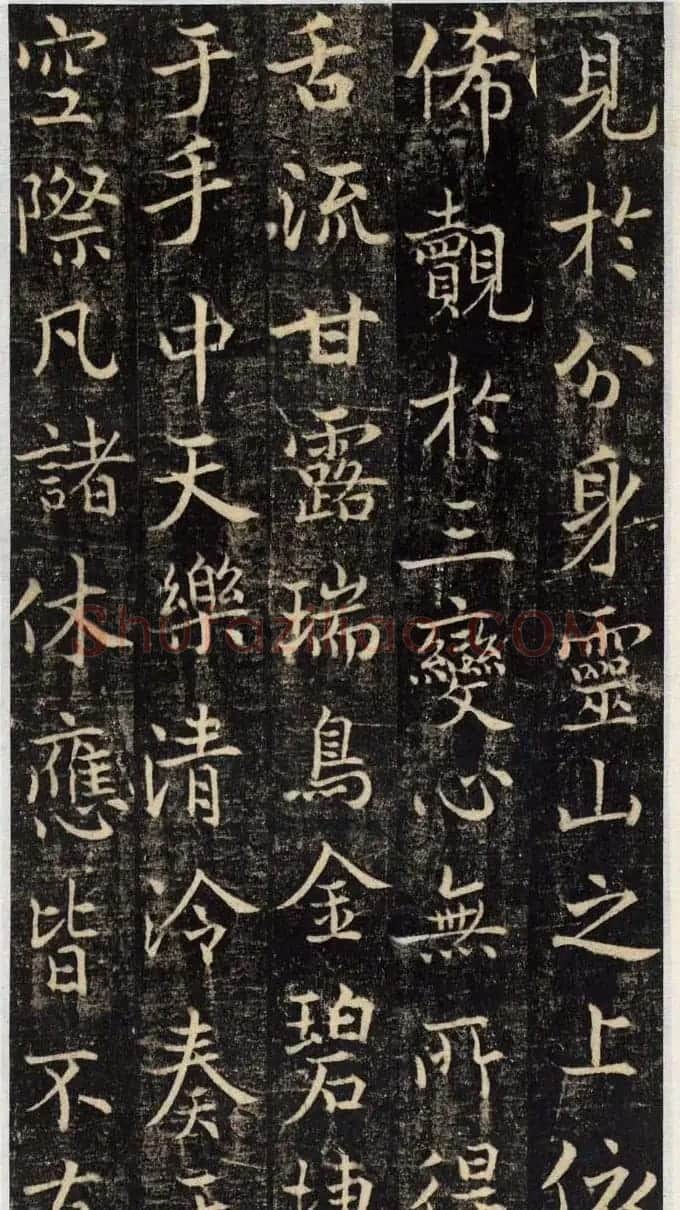 見於分身靈山之上依
俙觀於三變心無所得
舌流甘露瑞鳥金碧
于手中天樂清泠奏
空際凡諸休應皆不
Shufaziliao.COM